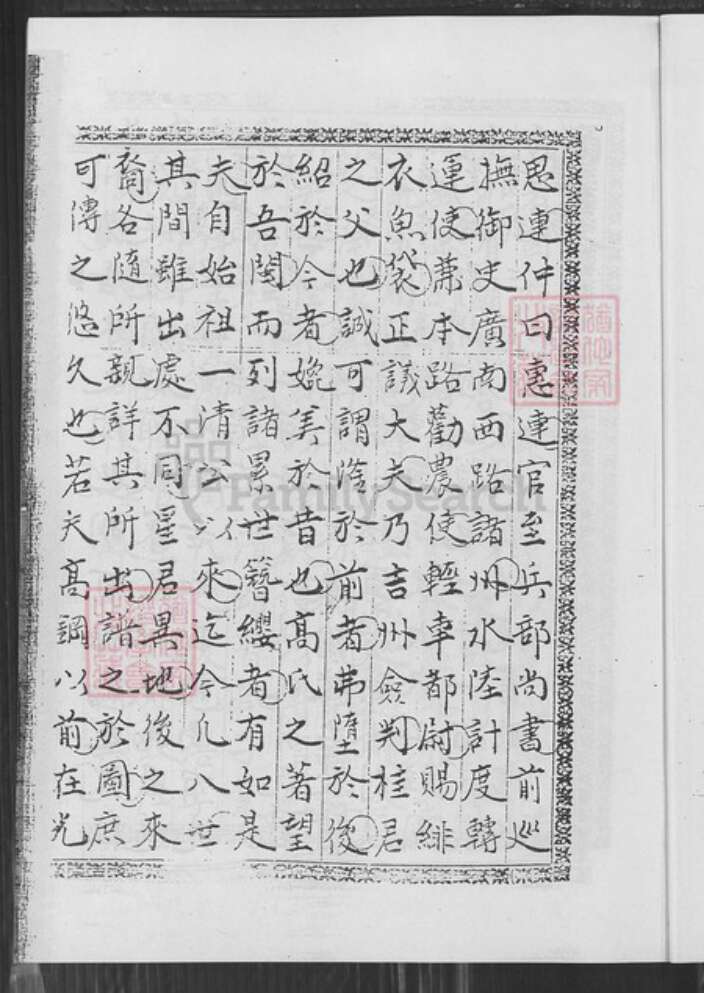 思連仲曰惠連官至兵部尚書前巡
撫御史廣南西路諸州水陸計度轉
運使兼本路勸農使輕車都尉賜緋
衣魚袋正議大夫乃吉州僉判桂君
之父也誠可謂陰於前者弗墮於後
紹於今者媲美於昔也高氏之著望
於吾閩而列諸累世簪纓者有如是
夫自始祖一清公以來迄今凡八世
其間雖出處不同星君異地後之來
裔各隨所親詳其所出譜之於圖庶
可傳之悠久也若夫高鋼以前在光
FamilySearch